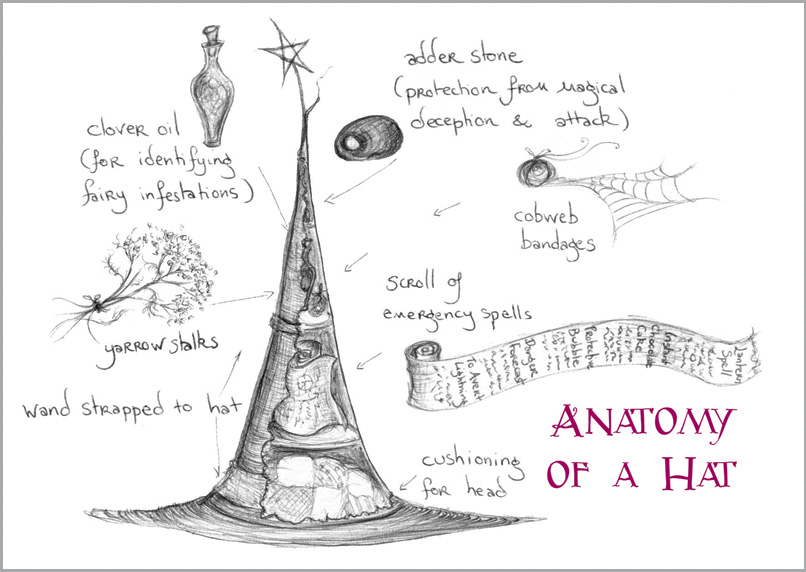 clover oil
(for identifying
fairy infestations)
adder stone
(protection from magical
deception & attack)
cobweb
bandages
yarrow stalks
scroll of
emergency spells
To Avert
Lightning
Danger
Forecast
Protective
Bubble
Instant
Chocolate
Cake
Lantern
Spell
wand strapped to hat
cushioning
for head
ANATOMY
OF A HAT